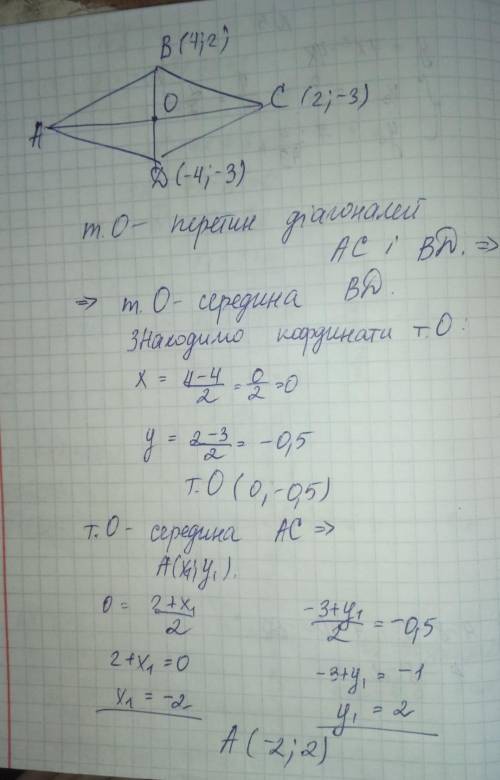 B (4; 2)
A
O
C (2; -3)
Д (-4; -3)
т. О - перетин діагоналей
AC і BД. ⇒
⇒ т. О - середина BД.
Знаходимо кординати т. О:
x = \frac{4-4}{2} = \frac{0}{2} = 0
y = \frac{2-3}{2} = -0,5
т. О (0; -0,5)
т. О - середина AC ⇒
A(x₁; y₁).
0 = \frac{2+x₁}{2}
2+x₁ = 0
x₁ = -2
\frac{-3+y₁}{2} = -0,5
-3+y₁ = -1
y₁ = 2
A (-2; 2)